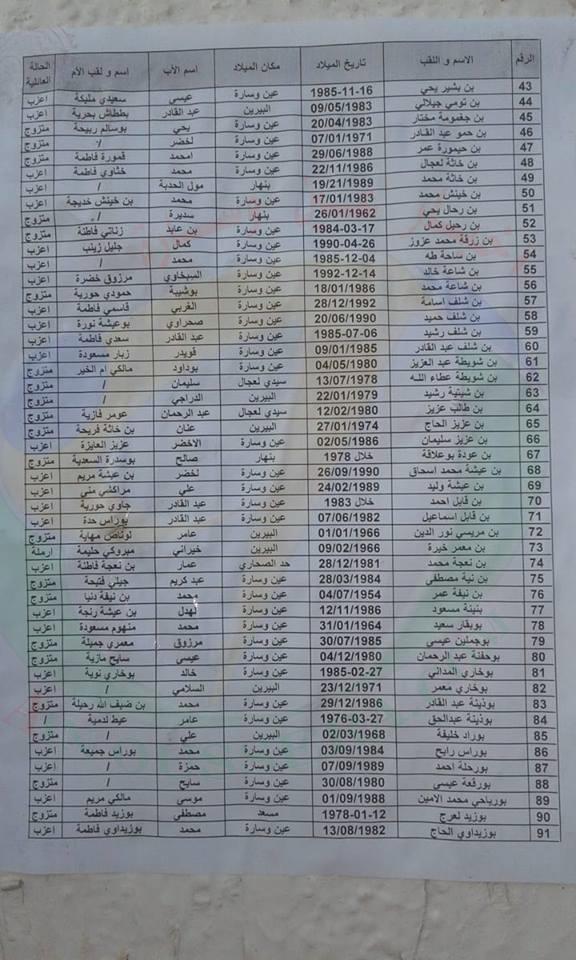 الرقم الاسم و اللقب تاريخ الميلاد مكان الميلاد اسم الأب اسم و لقب الأم الحالة العائلية
43 بن بشير يحي 1985-11-16 عين وسارة عيسى سعيدي مليكة اعزب
44 بن تومي جيلالي 09/05/1983 البيرين عبد القادر بطاش بحرية اعزب
45 بن جغمومة مختار 20/04/1983 عين وسارة يحي بوسالم ربيحة متزوج
46 بن حمو عبد القادر 07/01/1971 عين وسارة لخضر / متزوج
47 بن حيمورة عمر 29/06/1988 عين وسارة امحمد قمورة فاطمة متزوج
48 بن خاثة لعجال 22/11/1986 عين وسارة محمد خثاوي فاطمة اعزب
49 بن خاثة محمد 19/21/1989 بنهار مول الحدبة / اعزب
50 بن خينش محمد 17/01/1983 عين وسارة محمد بن خينش خديجة اعزب
51 بن رحال يحي 26/01/1962 بنهار سديرة / متزوج
52 بن رحيل كمال 1984-03-17 عين وسارة بن عابد زناتي فاطنة متزوج
53 بن زرقة محمد عزوز 1990-04-26 عين وسارة كمال جليل زينب اعزب
54 بن ساحة طه 1985-12-04 عين وسارة محمد / اعزب
55 بن شاعة خالد 1992-12-14 عين وسارة السبخاوي مرزوق خضرة اعزب
56 بن شاعة محمد 18/01/1986 عين وسارة بوشيبة حمودي حورية متزوج
57 بن شلف اسامة 28/12/1992 عين وسارة الغربي قاسمي فاطمة اعزب
58 بن شلف حميد 20/06/1990 عين وسارة صحراوي بوعيشة نورة اعزب
59 بن شلف رشيد 1985-07-06 عين وسارة عبد القادر سعدي فاطمة اعزب
60 بن شلف عبد القادر 09/01/1985 عين وسارة قويدر زبار مسعودة اعزب
61 بن شويطة عبد العزيز 04/05/1980 عين وسارة بوداود مالكي ام الخير متزوج
62 بن شويطة عطاء الله 13/07/1978 سيدي لعجال سليمان / متزوج
63 بن شينية رشيد 22/01/1979 البيرين الدراجي / متزوج
64 بن طالب عزيز 12/02/1980 سيدي لعجال عبد الرحمان عومر فازية متزوج
65 بن عزيز الحاج 27/01/1974 البيرين عنان بن خاثة فريحة متزوج
66 بن عزيز سليمان 02/05/1986 عين وسارة الاخضر عزيز العايزة اعزب
67 بن عودة بوعلاقة خلال 1978 بنهار صالح بوسدرة السعدية متزوج
68 بن عيشة محمد اسحاق 26/09/1990 عين وسارة لخضر بن عيشة مريم اعزب
69 بن عيشة وليد 24/02/1989 عين وسارة علي مراكشي منى اعزب
70 بن قابل احمد خلال 1983 عين وسارة عبد القادر جاوي حورية اعزب
71 بن قابل اسماعيل 07/06/1982 عين وسارة عبد القادر بوراس حدة اعزب
72 بن مريسي نور الدين 01/01/1966 البيرين عامر لوناص مهاية متزوج
73 بن معمر خيرة 09/02/1966 البيرين خيراني مبروكي حليمة ارملة
74 بن نعجة محمد 28/12/1981 حد الصحاري عمار بن نعجة فاطنة اعزب
75 بن نية مصطفى 28/03/1984 عين وسارة عبد كريم جبلي فتيحة متزوج
76 بن نيفة عمر 04/07/1954 عين وسارة محمد بن نيفة دنيا متزوج
77 بنينة مسعود 12/11/1986 عين وسارة لهدل بن عيشة رنجة اعزب
78 بوبقار سعيد 31/01/1964 عين وسارة محمد منهوم مسعودة متزوج
79 بوجملين عيسى 30/07/1985 عين وسارة مرزوق معمري جميلة متزوج
80 بوحفنة عبد الرحمان 04/12/1980 عين وسارة عيسى سايح مازية متزوج
81 بوخاري المداني 1985-02-27 عين وسارة خالد بوخاري نوية اعزب
82 بوخاري معمر 23/12/1971 البيرين السلامي / اعزب
83 بوذينة عبد القادر 29/12/1986 عين وسارة محمد بن ضيف الله رحيلة متزوج
84 بوذينة عبدالحق 1976-03-27 عين وسارة عامر عيط لدمية /
85 بوراد خليفة 02/03/1968 البيرين علي / متزوج
86 بوراس رابح 03/09/1984 عين وسارة محمد بوراس جميعة اعزب
87 بورحلة احمد 07/09/1989 عين وسارة حمزة / اعزب
88 بورفعة عيسى 30/08/1980 عين وسارة سايح / متزوج
89 بورياحي محمد الامين 01/09/1988 عين وسارة موسى مالكي مريم اعزب
90 بوزيد لعرج 1978-01-12 مسعد مصطفى بوزيد فاطمة متزوج
91 بوزيداوي الحاج 13/08/1982 عين وسارة محمد بوزيداوي فاطمة اعزب